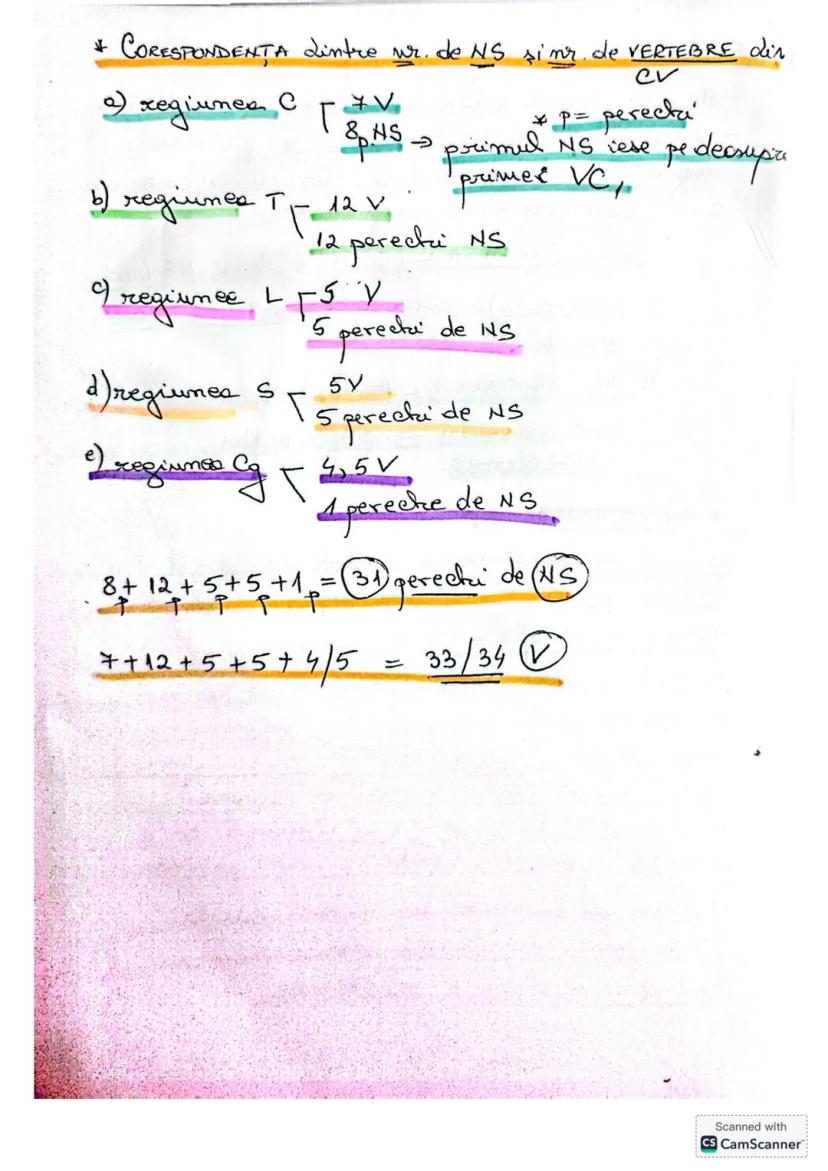 * CORESPONDENȚA dintre nr. de NS și nr. de VERTEBRE din
CV
a) regiunea C 7 V
* p = perechi
8p NS → primul NS iese pe deasupra
primei VC1
b) regiunea T 12 V
12 perechi NS
c) regiunea L 5 V
5 perechi de NS
d) regiunea S 5V
5 perechi de NS
e) regiunea Cg 4,5 V
1 pereche de NS
8p + 12p + 5p + 5p + 1p = 31 perechi de NS
7 + 12 + 5 + 5 + 4/5 = 33/34 V
Scanned with
CS CamScanner